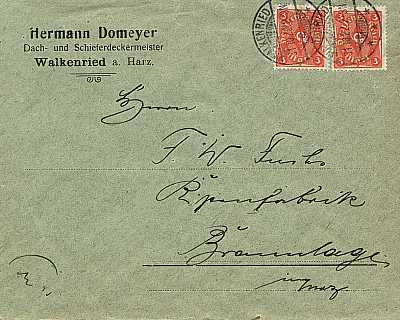 Hermann Domeyer
Dach- und Schieferdeckermeister
Walkenried a. Harz.
WALKENRIED
3 3
Herrn
F. W. Fuchs
Braunlage
im Harz